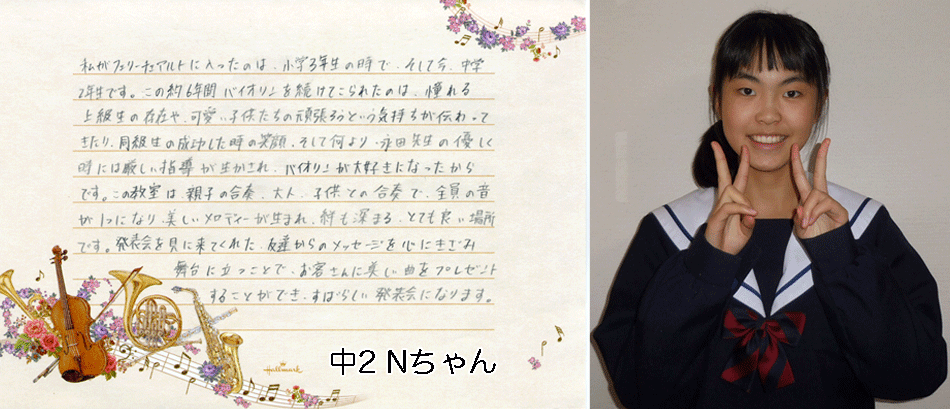 私がフェリーチェアルトに入ったのは、小学3年生の時で、そして今、中学
2年生です。この約6年間バイオリンを続けてこられたのは、憧れる
上級生の存在や、可愛い子供たちの頑張ろうという気持ちが伝わって
きたり、同級生の成功した時の笑顔、そして何より、永田先生の優しく
時には厳しい指導が生かされ、バイオリンが大好きになったから
です。この教室は、親子の合奏、大人、子供での合奏で、全員の音
が1つになり、美しいメロディーが生まれ、絆も深まる、とても良い場所
です。発表会を見に来てくれた、友達からのメッセージを心にきざみ
舞台に立つことで、お客さんに美しい曲をプレゼント
することができ、すばらしい発表会になります。
Hallmark
中2 Nちゃん